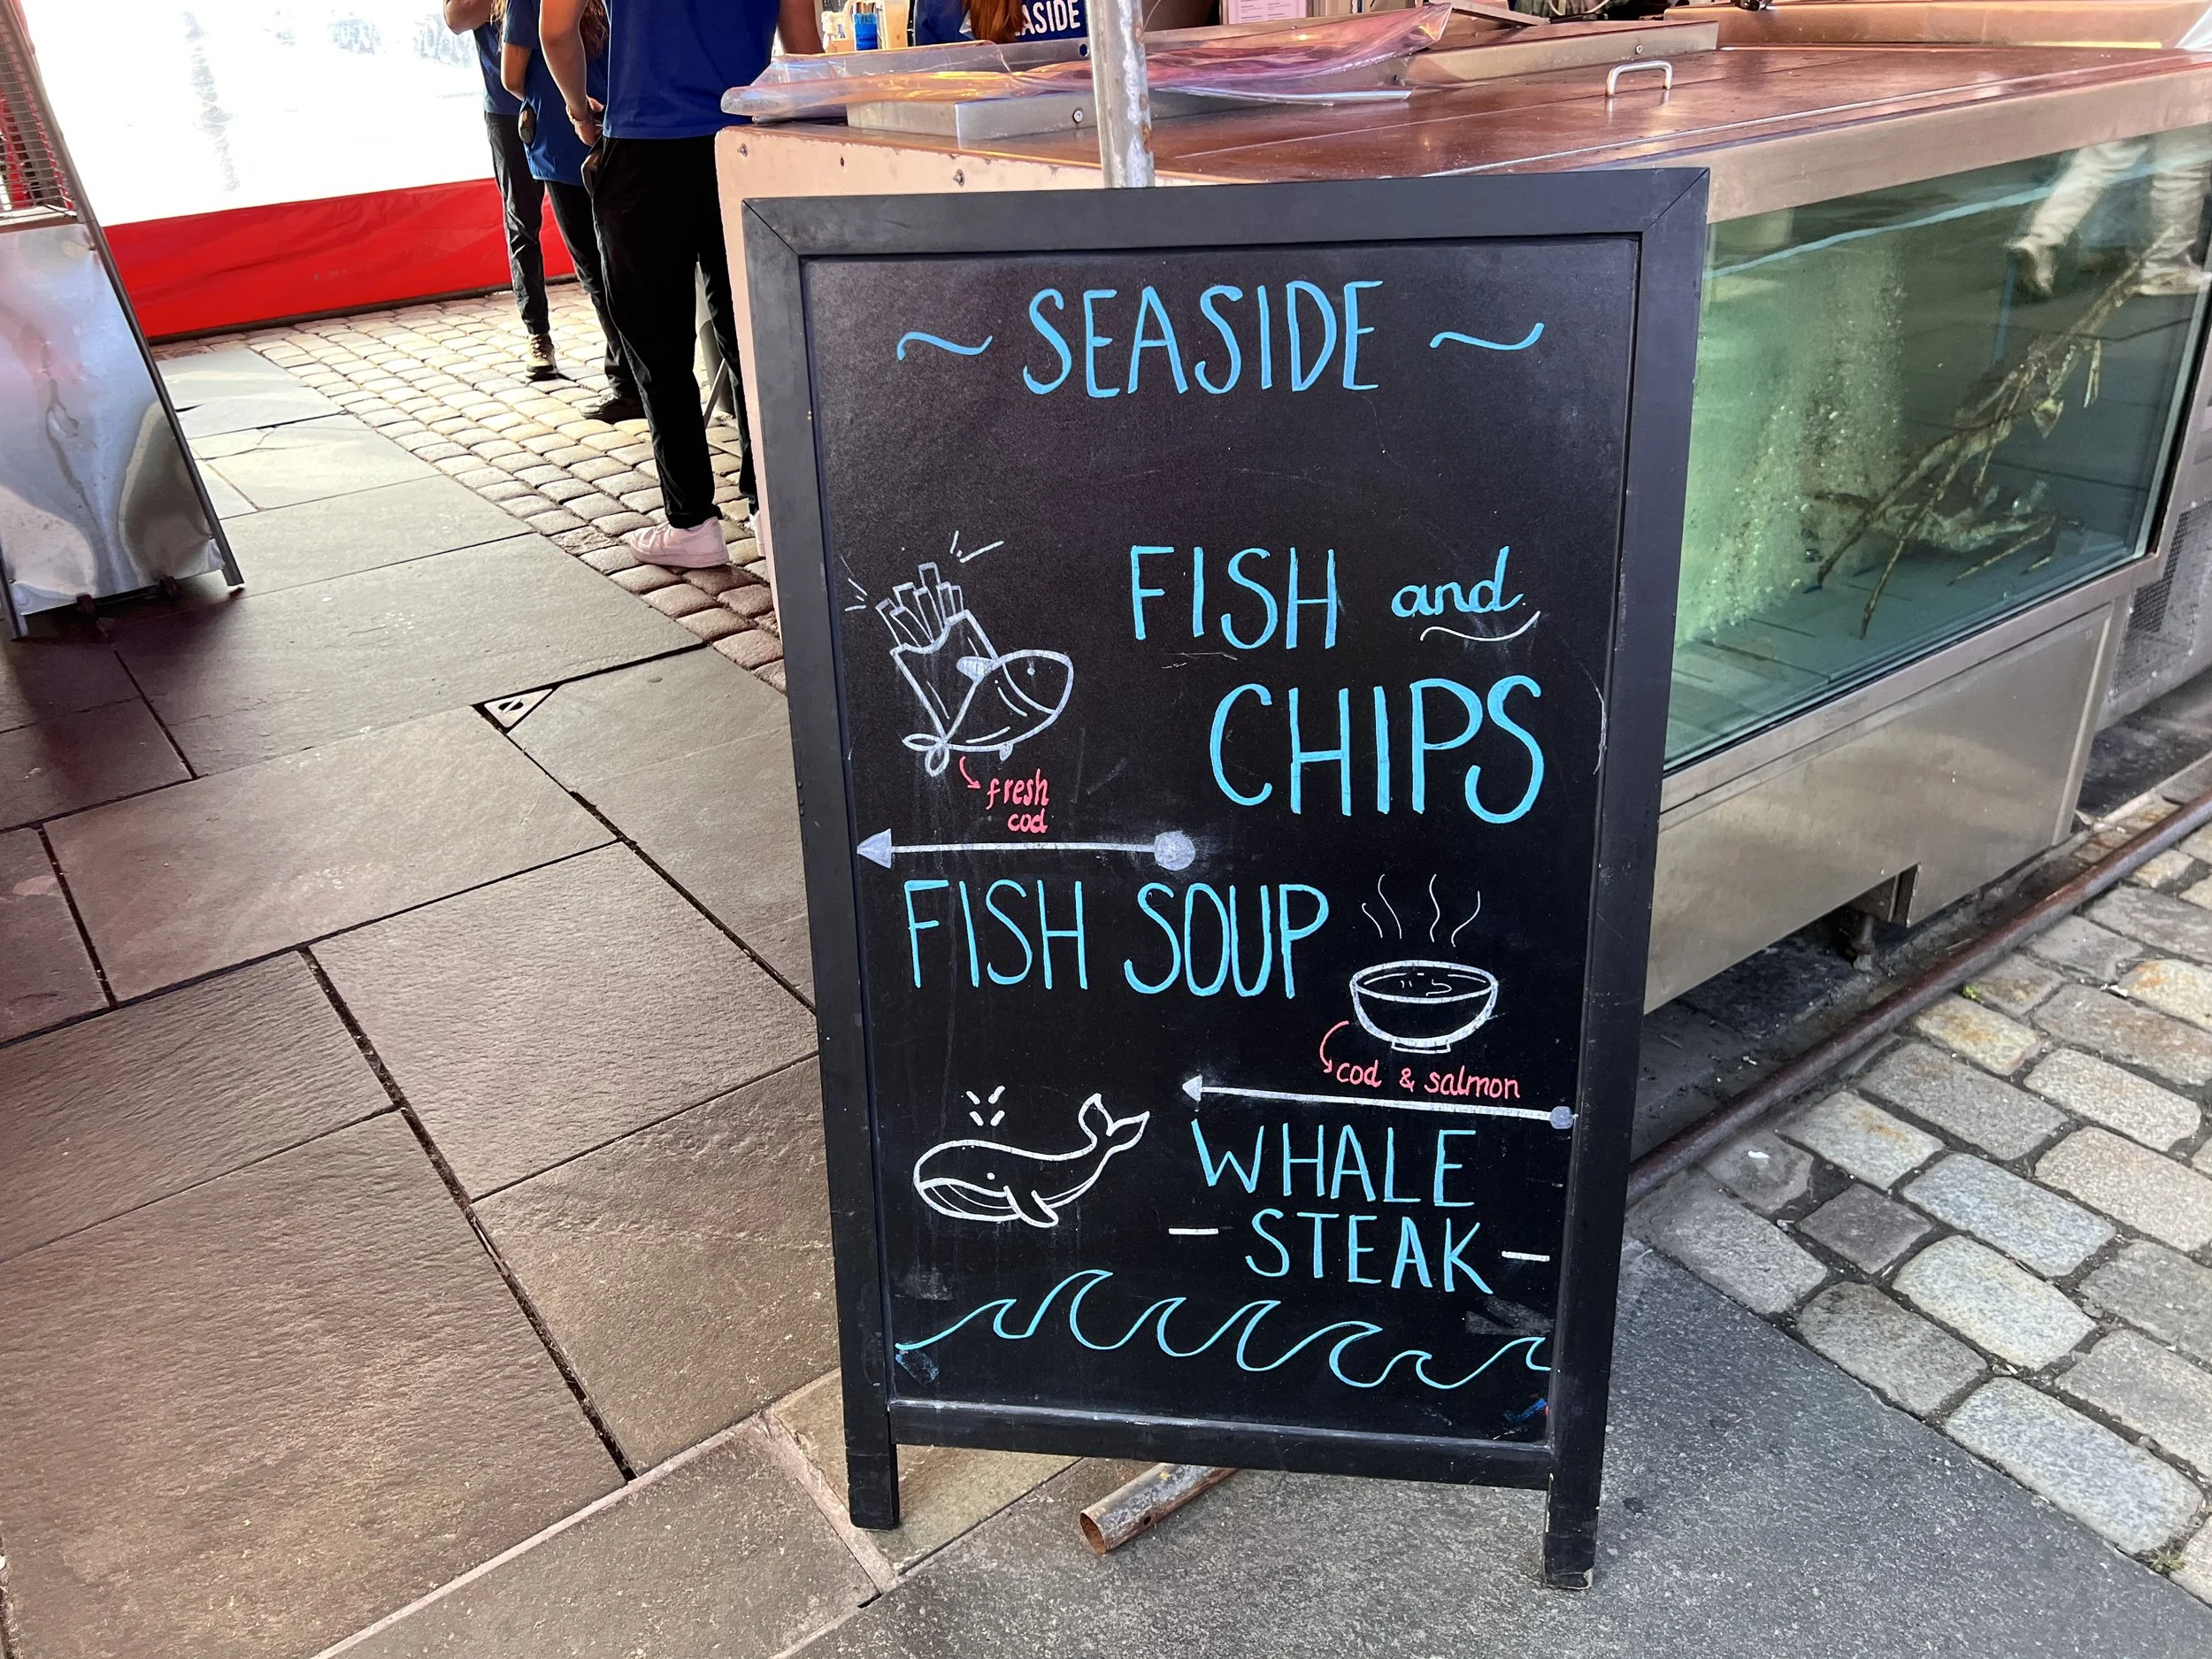 ASIDE
~ SEASIDE ~
FISH and
CHIPS
fresh
cod
FISH SOUP
cod & salmon
WHALE
- STEAK -